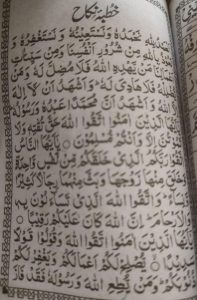 خطبہ نکاح
اَلْحَمْدُ لِلّٰهِ نَحْمَدُهٗ وَنَسْتَعِيْنُهٗ وَنَسْتَغْفِرُهٗ وَ
مِنْ شُرُوْرِ اَنْفُسِنَا وَمِنْ سَيِّئَاتِ
مَنْ يَّهْدِهِ اللّٰهُ فَلَا مُضِلَّ لَهٗ وَمَنْ
فَلَا هَادِيَ لَهٗ وَاَشْهَدُ اَنْ لَّا اِلٰهَ
اللّٰهُ وَاَشْهَدُ اَنَّ مُحَمَّدًا عَبْدُهٗ وَرَسُوْلُهٗ
اَيُّهَا الَّذِيْنَ اٰمَنُوا اتَّقُوا اللّٰهَ حَقَّ تُقٰتِهٖ وَلَا
اِلَّا وَاَنْتُمْ مُّسْلِمُوْنَ ○ يٰاَيُّهَا النَّاسُ
اتَّقُوْا رَبَّكُمُ الَّذِيْ خَلَقَكُمْ مِّنْ نَّفْسٍ وَّاحِدَةٍ
وَّخَلَقَ مِنْهَا زَوْجَهَا وَبَثَّ مِنْهُمَا رِجَالًا كَثِيْرًا
وَاتَّقُوا اللّٰهَ الَّذِيْ تَسَآءَلُوْنَ بِهٖ
وَالْاَرْحَامَ اِنَّ اللّٰهَ كَانَ عَلَيْكُمْ رَقِيْبًا ○
يٰاَيُّهَا الَّذِيْنَ اٰمَنُوا اتَّقُوا اللّٰهَ وَقُوْلُوْا قَوْلًا
سَدِيْدًا ○ يُّصْلِحْ لَكُمْ اَعْمَالَكُمْ وَيَغْفِرْ لَكُمْ
ذُنُوْبَكُمْ وَمَنْ يُّطِعِ اللّٰهَ وَرَسُوْلَهٗ فَقَدْ فَازَ